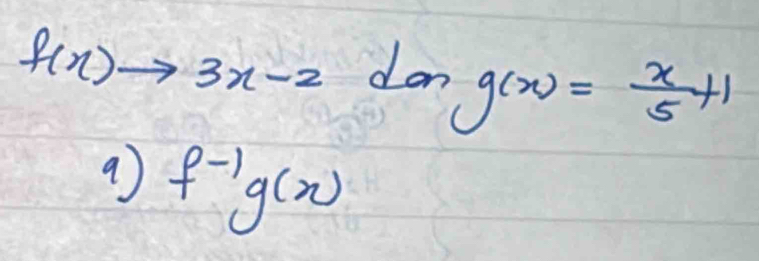 f(x) → 3x - 2 dan g(x) = x/5 + 1
a) f⁻¹g(x)